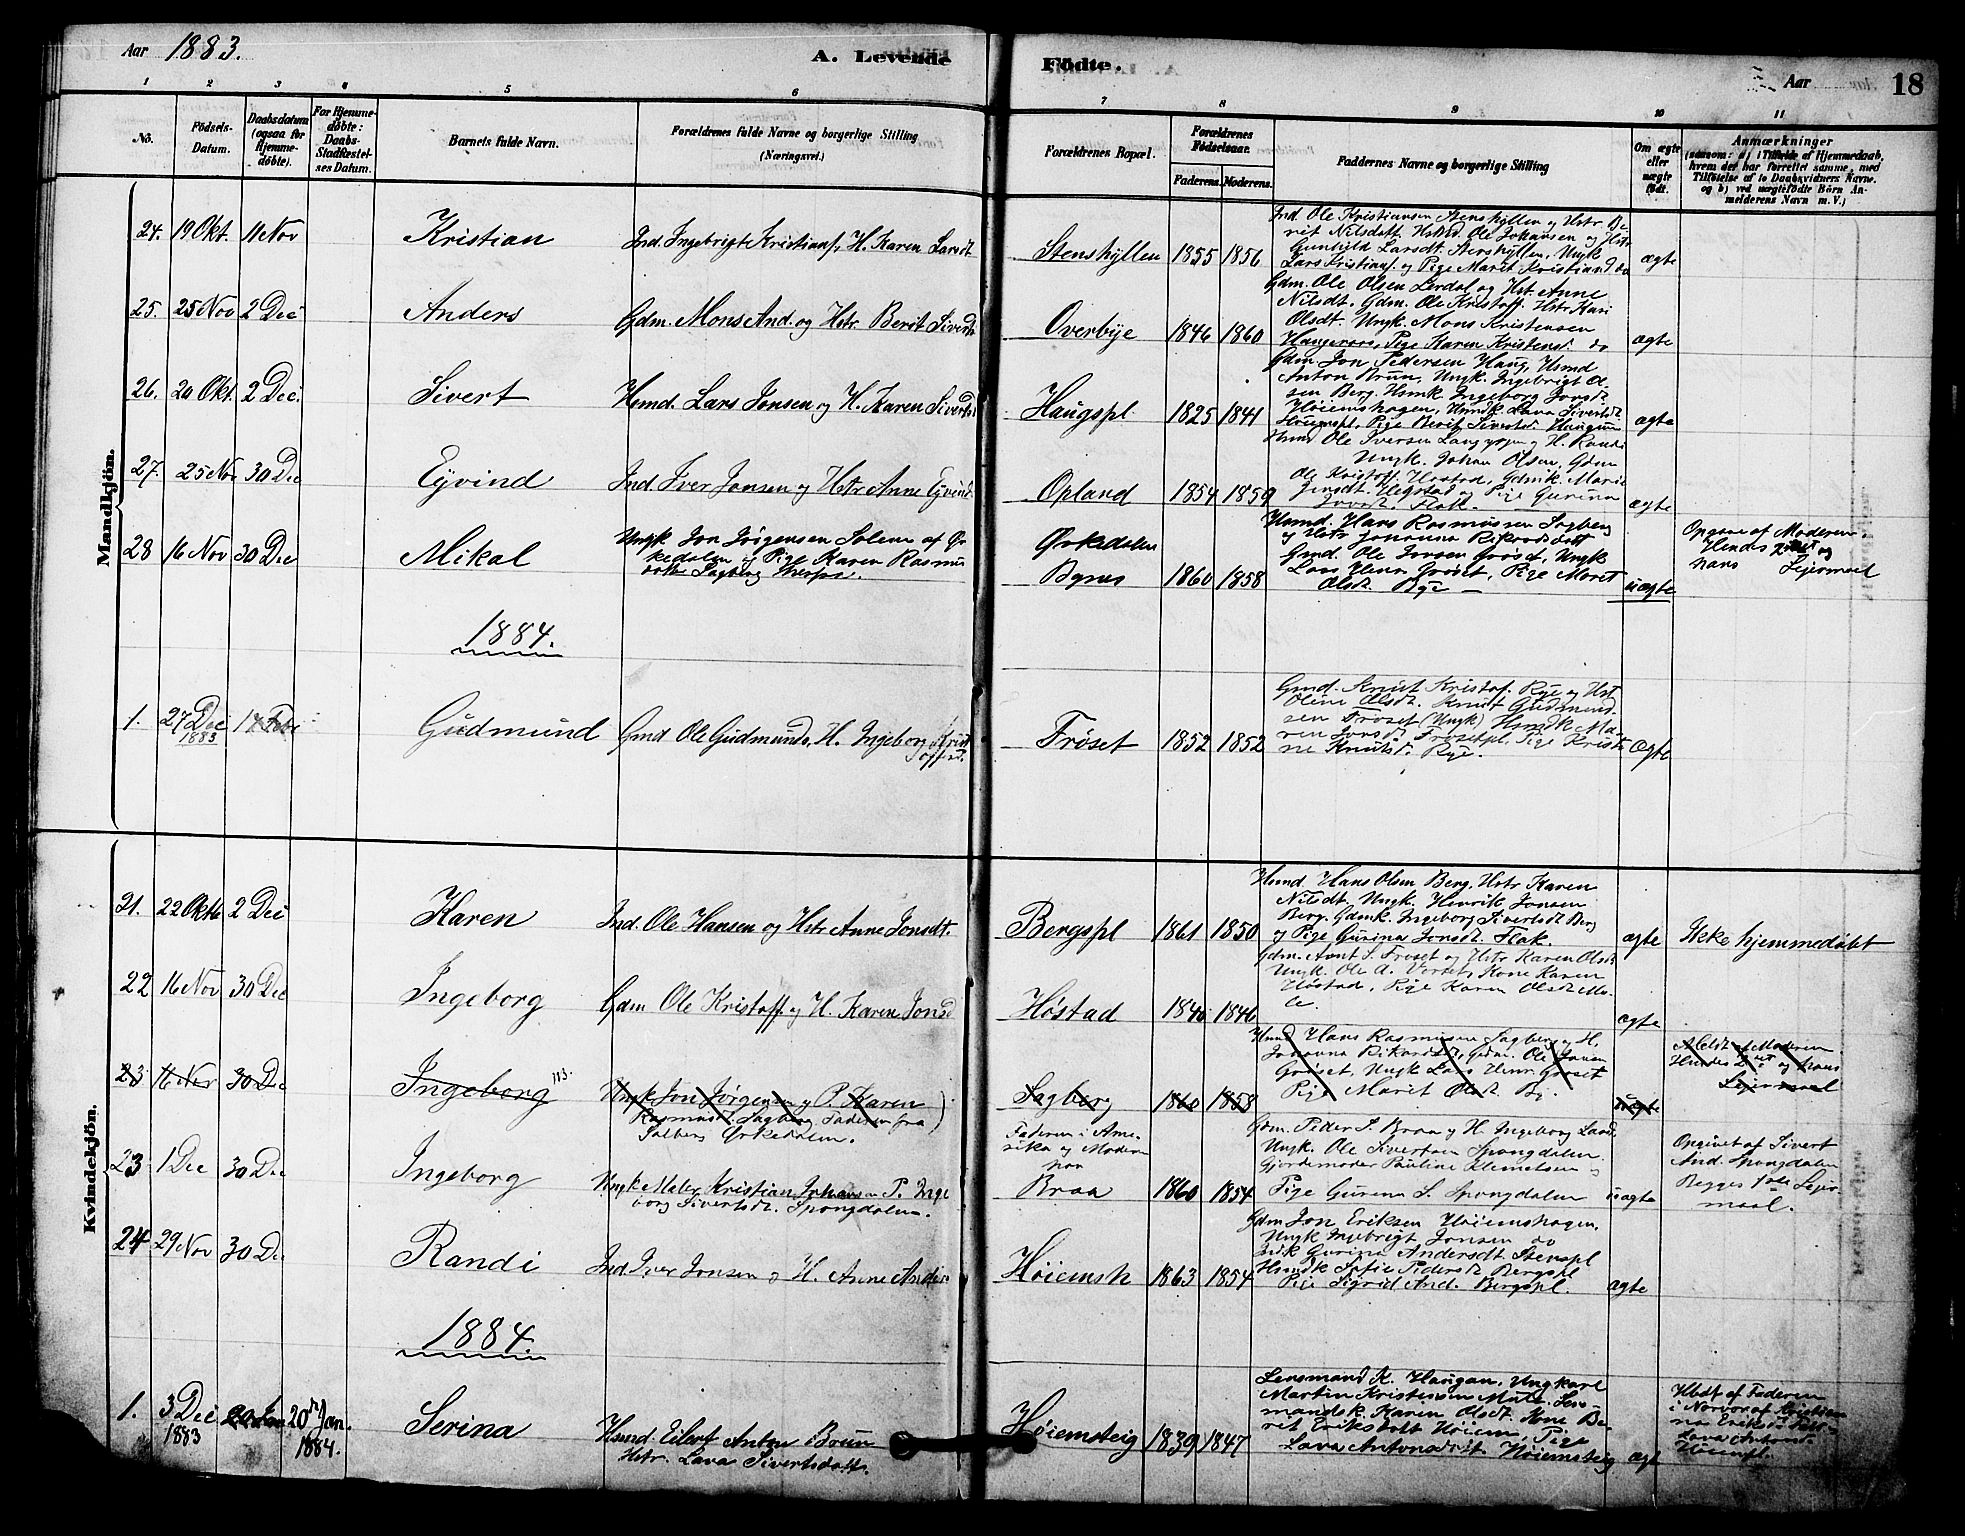 Aar 1883.
A. Levende Födte.
Aar
18
1 2 3 4 5 6 7 8 9 10 11
No.
Födsels-Datum.
Daabsdatum (ogsaa for Hjemmedöbte).
For Hjemmedöbte: Daabs-Stadfæstelses Datum.
Barnets fulde Navn.
Forældrenes fulde Navne og borgerlige Stilling (Næringsvei.)
Forældrenes Bopæl.
Forældrenes Födselsaar.
Faderens. Moderens.
Faddernes Navne og borgerlige Stilling
Om ægte eller uægte födt.
Anmærkninger
(saasom: a) i Tilfælde af Hjemmedaab, hvem der har forrettet samme, med Tilföielse af to Daabsvidners Navne, og b) ved uægtefödte Börn Anmelderens Navn m. V.)
Mandkjön.
24. 19 Okt. 11 Nov Kristian Ind. Ingebrigt Kristians. H. Karen Larsdt Stenshyllen 1855 1856
Ind. Ole Kristiansen Stenshyllen og Hstr Be-
rit Nilsdatt. Hsmd. Ole Johansen og Hstr
Gunhild Larsdt. Stenshyllen, Ungk
Lars Kristians. og Pige Marit Kristiansd do
ægte
25. 25 Nov 2 Dec Anders Gdm. Mons And. og Hstr Berit Sivertsd Overbye 1846 1860
Gdm. Ole Olsen Lerdal og Hst. Anne
Nilsdt. Gdm. Ole Kristoff. Hstr Kari
Olsdt. Ungk. Mons Kristensen
Pige Karen Kristensd. do
ægte
26. 20 Okt. 2 Dec. Sivert Hsmd. Lars Jonsen og H. Karen Sivertsd Haugspl. 1825 1841
Gdm Jon Pedersen Haug, Hsmd
Anton Brun, Ungk. Ingebrigt Ol-
sen Berg. Hsmk. Ingeborg Jonsdt
Høiemshagen, Hsmdk Lava Sivertsdt
Pige Berit Sivertsdt
ægte
27. 25 Nov 30 Dec Eyvind Ind. Iver Jonsen og Hstr Anne Eyvind Opland 1854 1859
Hsmd Ole Iversen og H. Randi
Ungk. Johan Olsen, Gdm
Ole Kristoff. Høstad, Gdmk. Marit
Jonsdt. Høstad og Pige Gurina
Flak.
ægte
28 16 Nov 30 Dec Mikal
Ungk Jon Jörgensen Solem af Or-
kedalen og Pige Karen Rasmus
Sagberg
Orkedalen
Bynes 1860 1858
Hsmd. Hans Rasmussen Sagberg
og Hstr Johanna Rikardsdatt
Gmd. Ole Jonsen Grøset, Ungk
Lars Henr. Grøset, Pige Maret
Olsdt. Bye —
uægte
Opgave af Moderen.
Hendes 2det og
hans Lejermaal
1884.
1. 27 Dec 1883 14 Feb Gudmund Gmd Ole Gudmunds. H. Ingeborg Krist
offersd. Frøset 1852 1852
Gmd. Knut Kristof. Rye og Hst
Oline Olsdt. Knut Gudmund
sen Frøset (Ungk) Hsmdk Ma-
ren Jonsdt. Frøsetpl. Pige Kristi-
ne Knutsd. Rye.
Ægte
Kvindekjön.
21. 22 Oktb 2 Dec Karen Ind. Ole Hansen og Hstr Anne Jonsdt. Bergspl 1861 1850
Hsmd. Hans Olsen Berg, Hstr Karen
Nilsdt. Ungk. Henrik Jonsen
Berg. Gdmk. Ingeborg Sivertsdt Berg
og Pige Gurina Jonsdt. Flak.
ægte Ikke hjemmedøbt
22 16 Nov 30 Dec Ingeborg Gdm Ole Kristoff. og H. Karen Jonsd Høstad 1840 1846
Gdm. Arnt S. Frøset og Hstr Karen Olsdt
Ungk. Ole A. Verset, Kone Karen
Høstad, Pige Karen Olsdt Mo-
ægte
23 16 Nov 30 Dec Ingeborg
Ungk Jon Jørgensen og P. Karen
Rasmusd. Sagberg Faderen fra
Solberg Orkedalen.
Sagberg 1860 1858
Hsmd Hans Rasmussen Sagberg og H.
Johanna Rikardsdt, Gdm. Ole Jonsen
Grøset, Ungk Lars Henr. Grøset
Pige Maret Olsdt. By.
uægte
Meldt af Moderen.
Hendes 2det og hans
Lejermaal
23 1 Dec 30 Dec Ingeborg
Ungk Maler Kristian Johansen P. Inge
borg Sivertsdt. Spongdalen.
Faderen i Ame-
rika og Moderen
paa
Braa 1860 1854
Gdm. Peder S. Braa og H. Ingeborg Larsd.
Ungk. Ole Sivertsen Spongdalen.
Gjordemoder Pauline Klemetsen og
Pige Gurina S. Spongdalen
uægte
Opgivet af Sivert
And. Spongdalen
Begges 1ste Lejer-
maal.
24 29 Nov 30 Dec Randi Ind. Iver Jonsen og H. Anne Anders Høiemsh 1863 1854
Gdm Jon Eriksen Høiemshagen.
Ungk Ingebrigt Jonsen do
Indk Gurine Andersdt. Stenspl
Hsmdk Sofie Pedersdt Bergspl
Pige Sigrid And. Bergspl.
ægte
1884.
1. 3 Dec 1883 20 Jan 20de Jan. 1884. Serina
Hsmd. Eilert Anton Brun
Hstr. Lava Sivertsdatt.
Høiemsteig 1839 1847
Lensmand K. Haugan, Ungkarl
Martin Kristensen Lens-
mandsk. Karen Olsdt. Kone Be-
rit Eriksdatt Høiem, Pige
Lava Antonsdatt Høiemsteig
ægt
Hbdt af Faderen
i Nærvær af Kristian-
ne Eriksdt
Lava Antonsd.
Høiempl.